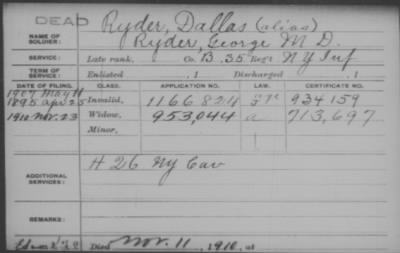 DEAD
Ryder, Dallas (alias)
NAME OF SOLDIER: Ryder, George M D.
SERVICE: Late rank, Co. B. 35 Reg't N Y Inf
TERM OF SERVICE: Enlisted , 1 Discharged , 1
DATE OF FILING. CLASS. APPLICATION NO. LAW. CERTIFICATE NO.
1907 May 11
1895 Apr 25 Invalid, 1166,824 934159
1910 Nov. 23 Widow, 953,044 a 713,697
Minor,
ADDITIONAL SERVICES: H 26 Ny Cav
REMARKS:
Died Nov. 11, 1910, at